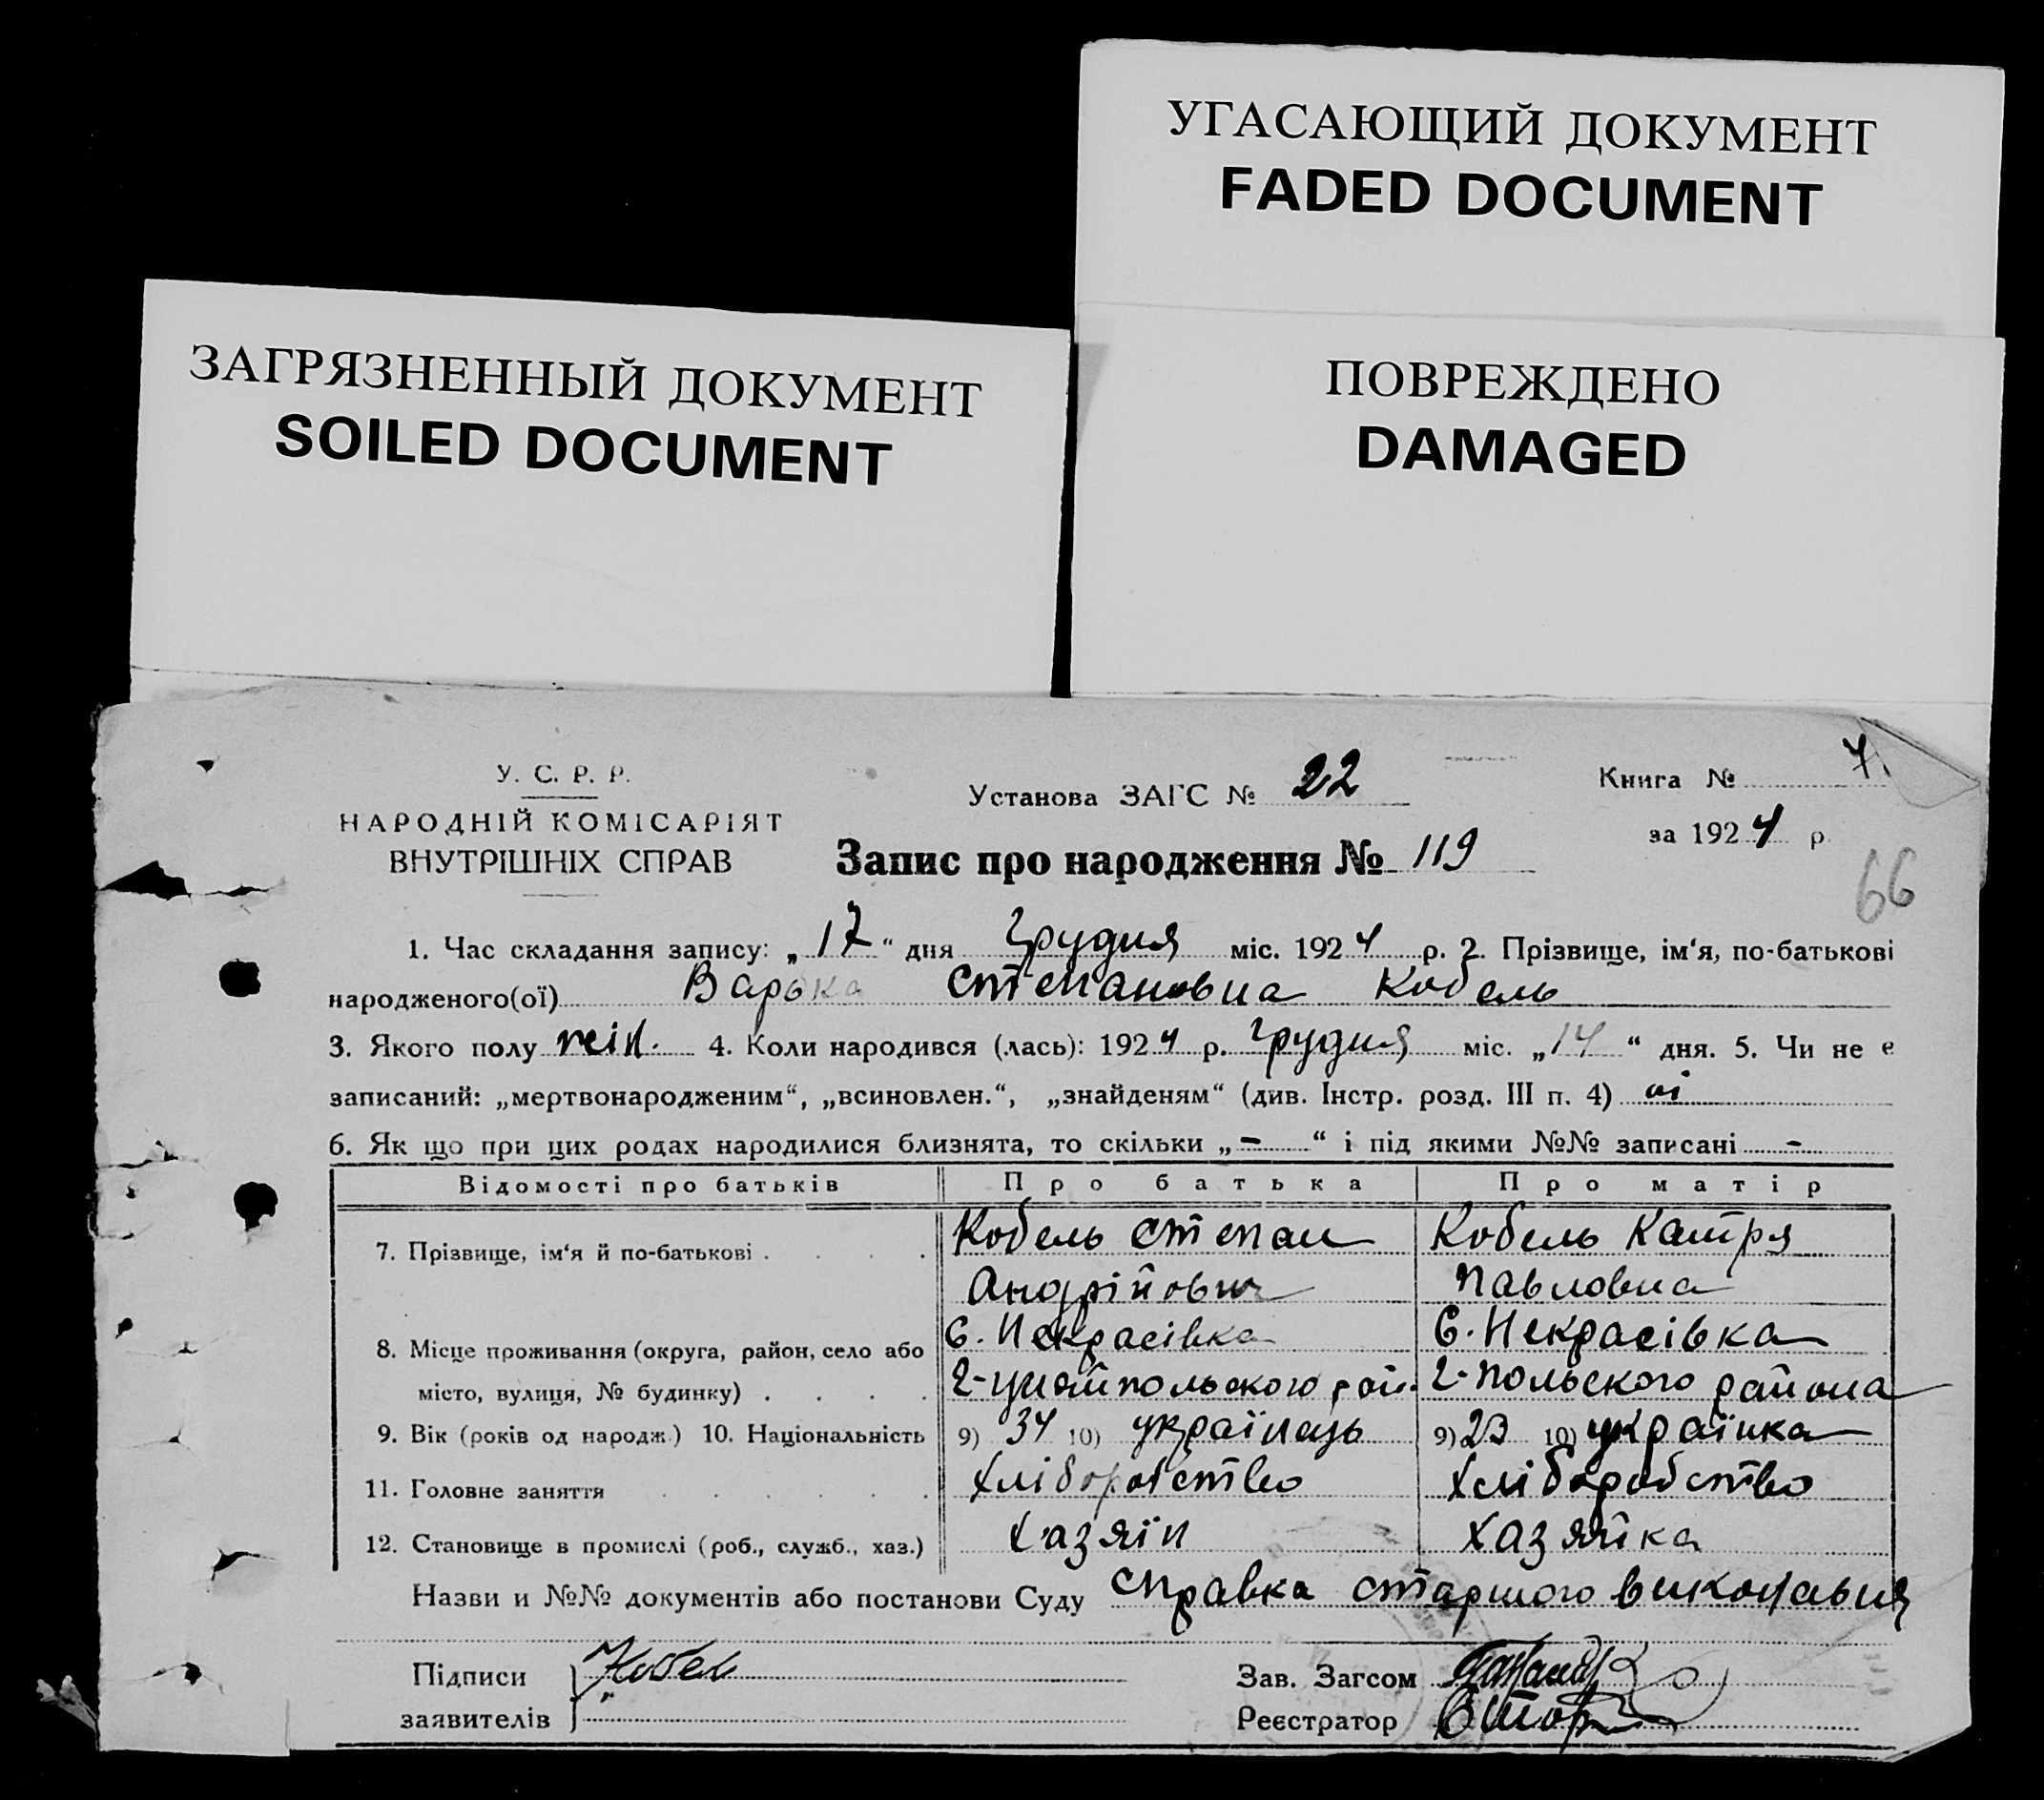 УГАСАЮЩИЙ ДОКУМЕНТ
FADED DOCUMENT
ЗАГРЯЗНЕННЫЙ ДОКУМЕНТ
SOILED DOCUMENT
ПОВРЕЖДЕНО
DAMAGED
У. С. Р. Р.
НАРОДНІЙ КОМІСАРІЯТ
ВНУТРІШНІХ СПРАВ
Установа ЗАГС № 22
Книга № 7.
за 1924 р.
Запис про народження № 119
66
1. Час складання запису: „17“ дня Грудня міс. 1924 р. 2. Прізвище, ім‘я, по-батькові
народженого(ої) Варька Степановна Кобель
3. Якого полу жін. 4. Коли народився (лась): 1924 р. Грудня міс. „14“ дня. 5. Чи не є
записаний: „мертвонародженим“, „всиновлен.“, „знайденям“ (див. Інстр. розд. III п. 4) ні
6. Як що при цих родах народилися близнята, то скільки „-“ і під якими №№ записані -
Відомості про батьків Про батька Про матір
7. Прізвище, ім‘я й по-батькові Кобель Степан Кобель Катря
Андрійович Павловна
8. Місце проживання (округа, район, село або С. Некрасівка С. Некрасівка
місто, вулиця, № будинку) польского района
9. Вік (років од народж.) 10. Національність 9) 34 10) українець 9) 23 10) українка
11. Головне заняття Хліборобство Хліборобство
12. Становище в промислі (роб., служб., хаз.) Хазяїн Хазяйка
Назви и №№ документів або постанови Суду Справка старшого
Підписи Кобел
заявителів
Зав. Загсом
Реєстратор